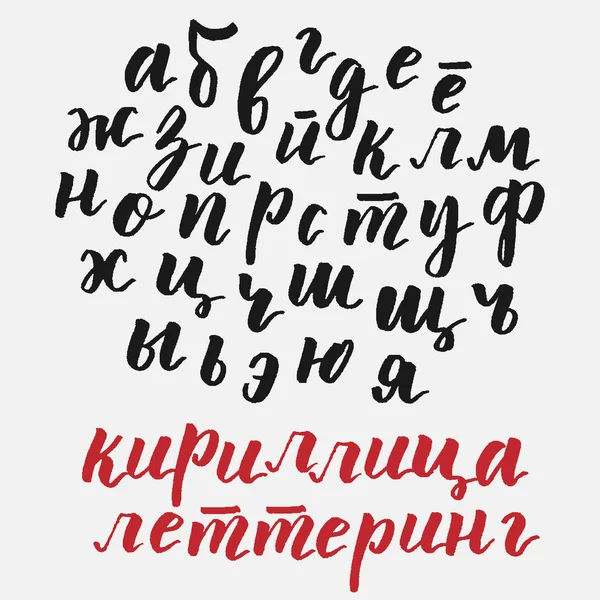 а б в г д е ё
ж з и й к л м
н о п р с т у ф
х ц ч ш щ ъ
ы ь э ю я
кириллица
леттеринг